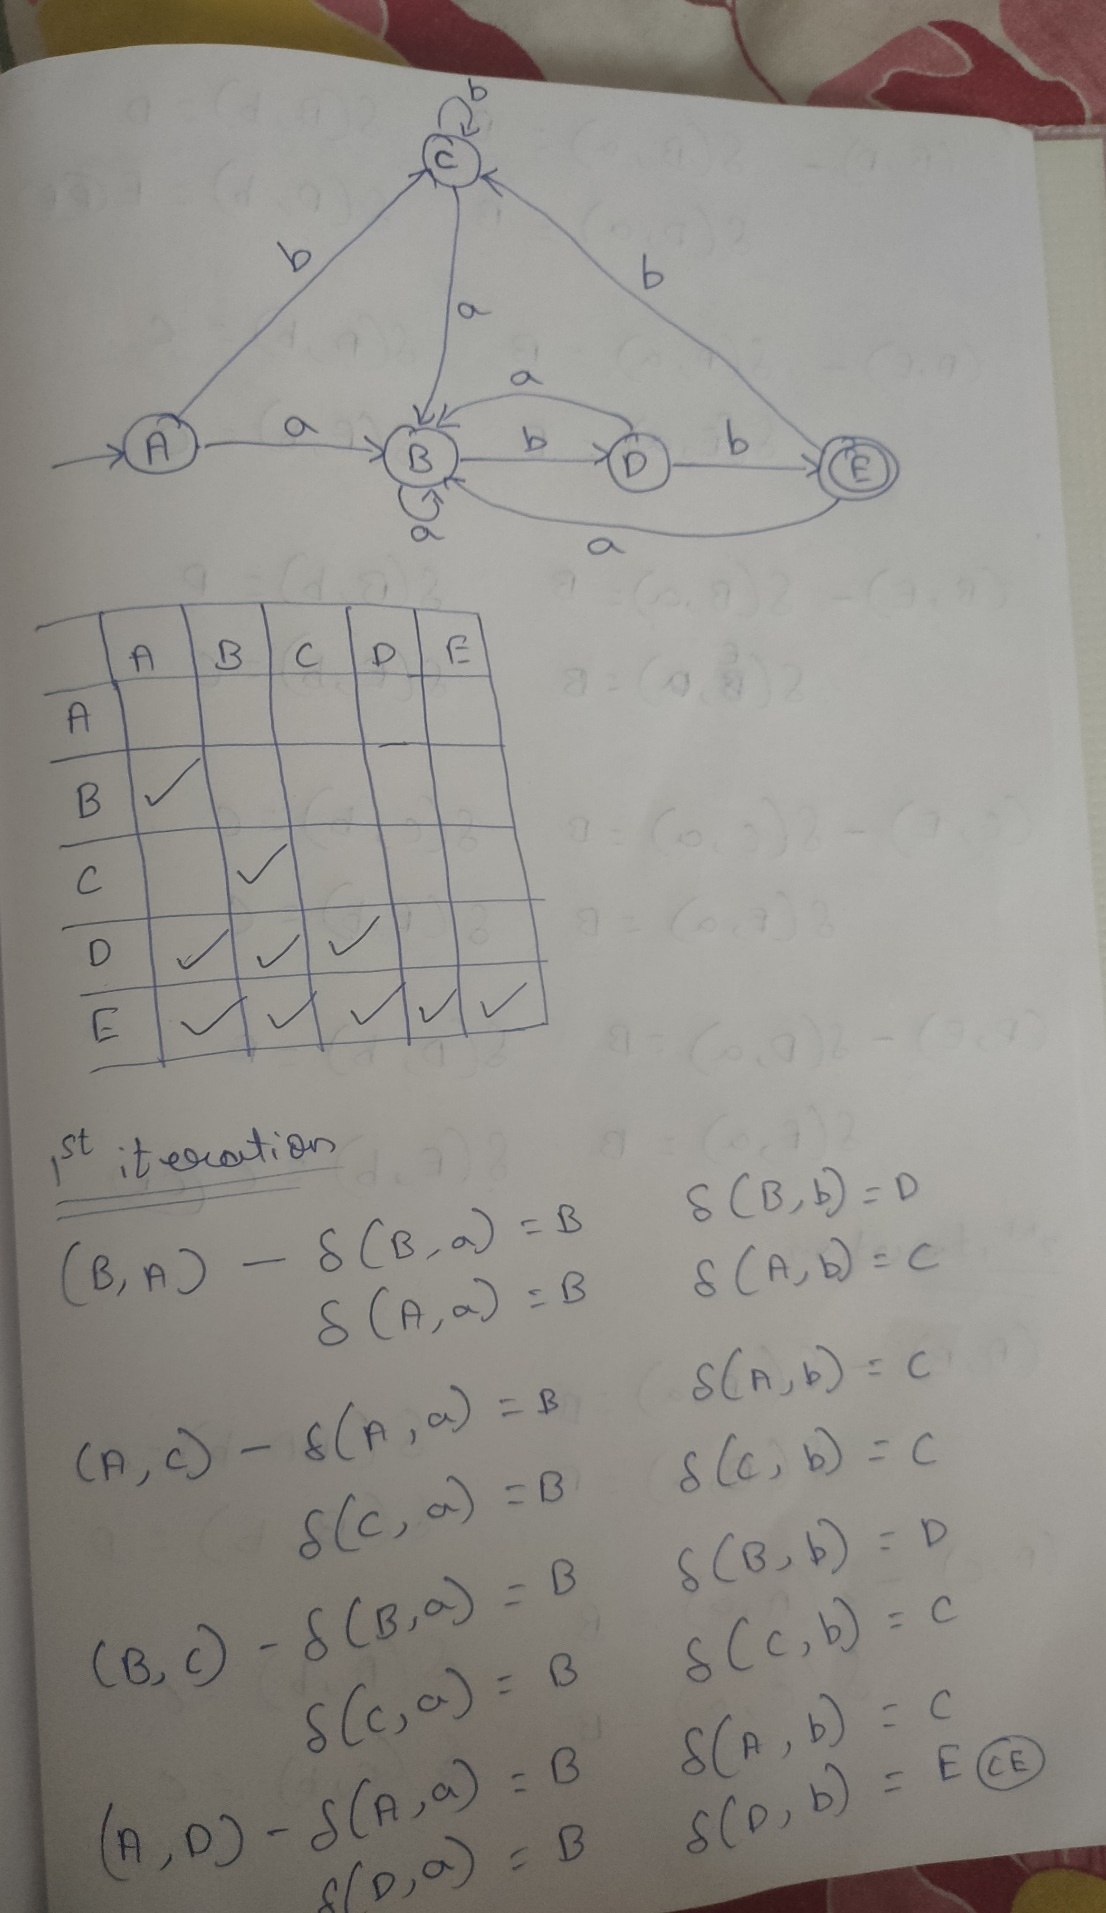 b
C
b
b
a
a
A
a
B
b
D
b
E
a
a
A B C D E
A
B ✓
C ✓
D ✓ ✓ ✓
E ✓ ✓ ✓ ✓ ✓
1st iteration
(B, A) - δ(B, a) = B δ(B, b) = D
δ(A, a) = B δ(A, b) = C
(A, C) - δ(A, a) = B δ(A, b) = C
δ(C, a) = B δ(C, b) = C
(B, C) - δ(B, a) = B δ(B, b) = D
δ(C, a) = B δ(C, b) = C
(A, D) - δ(A, a) = B δ(A, b) = C
δ(D, a) = B δ(D, b) = E CE